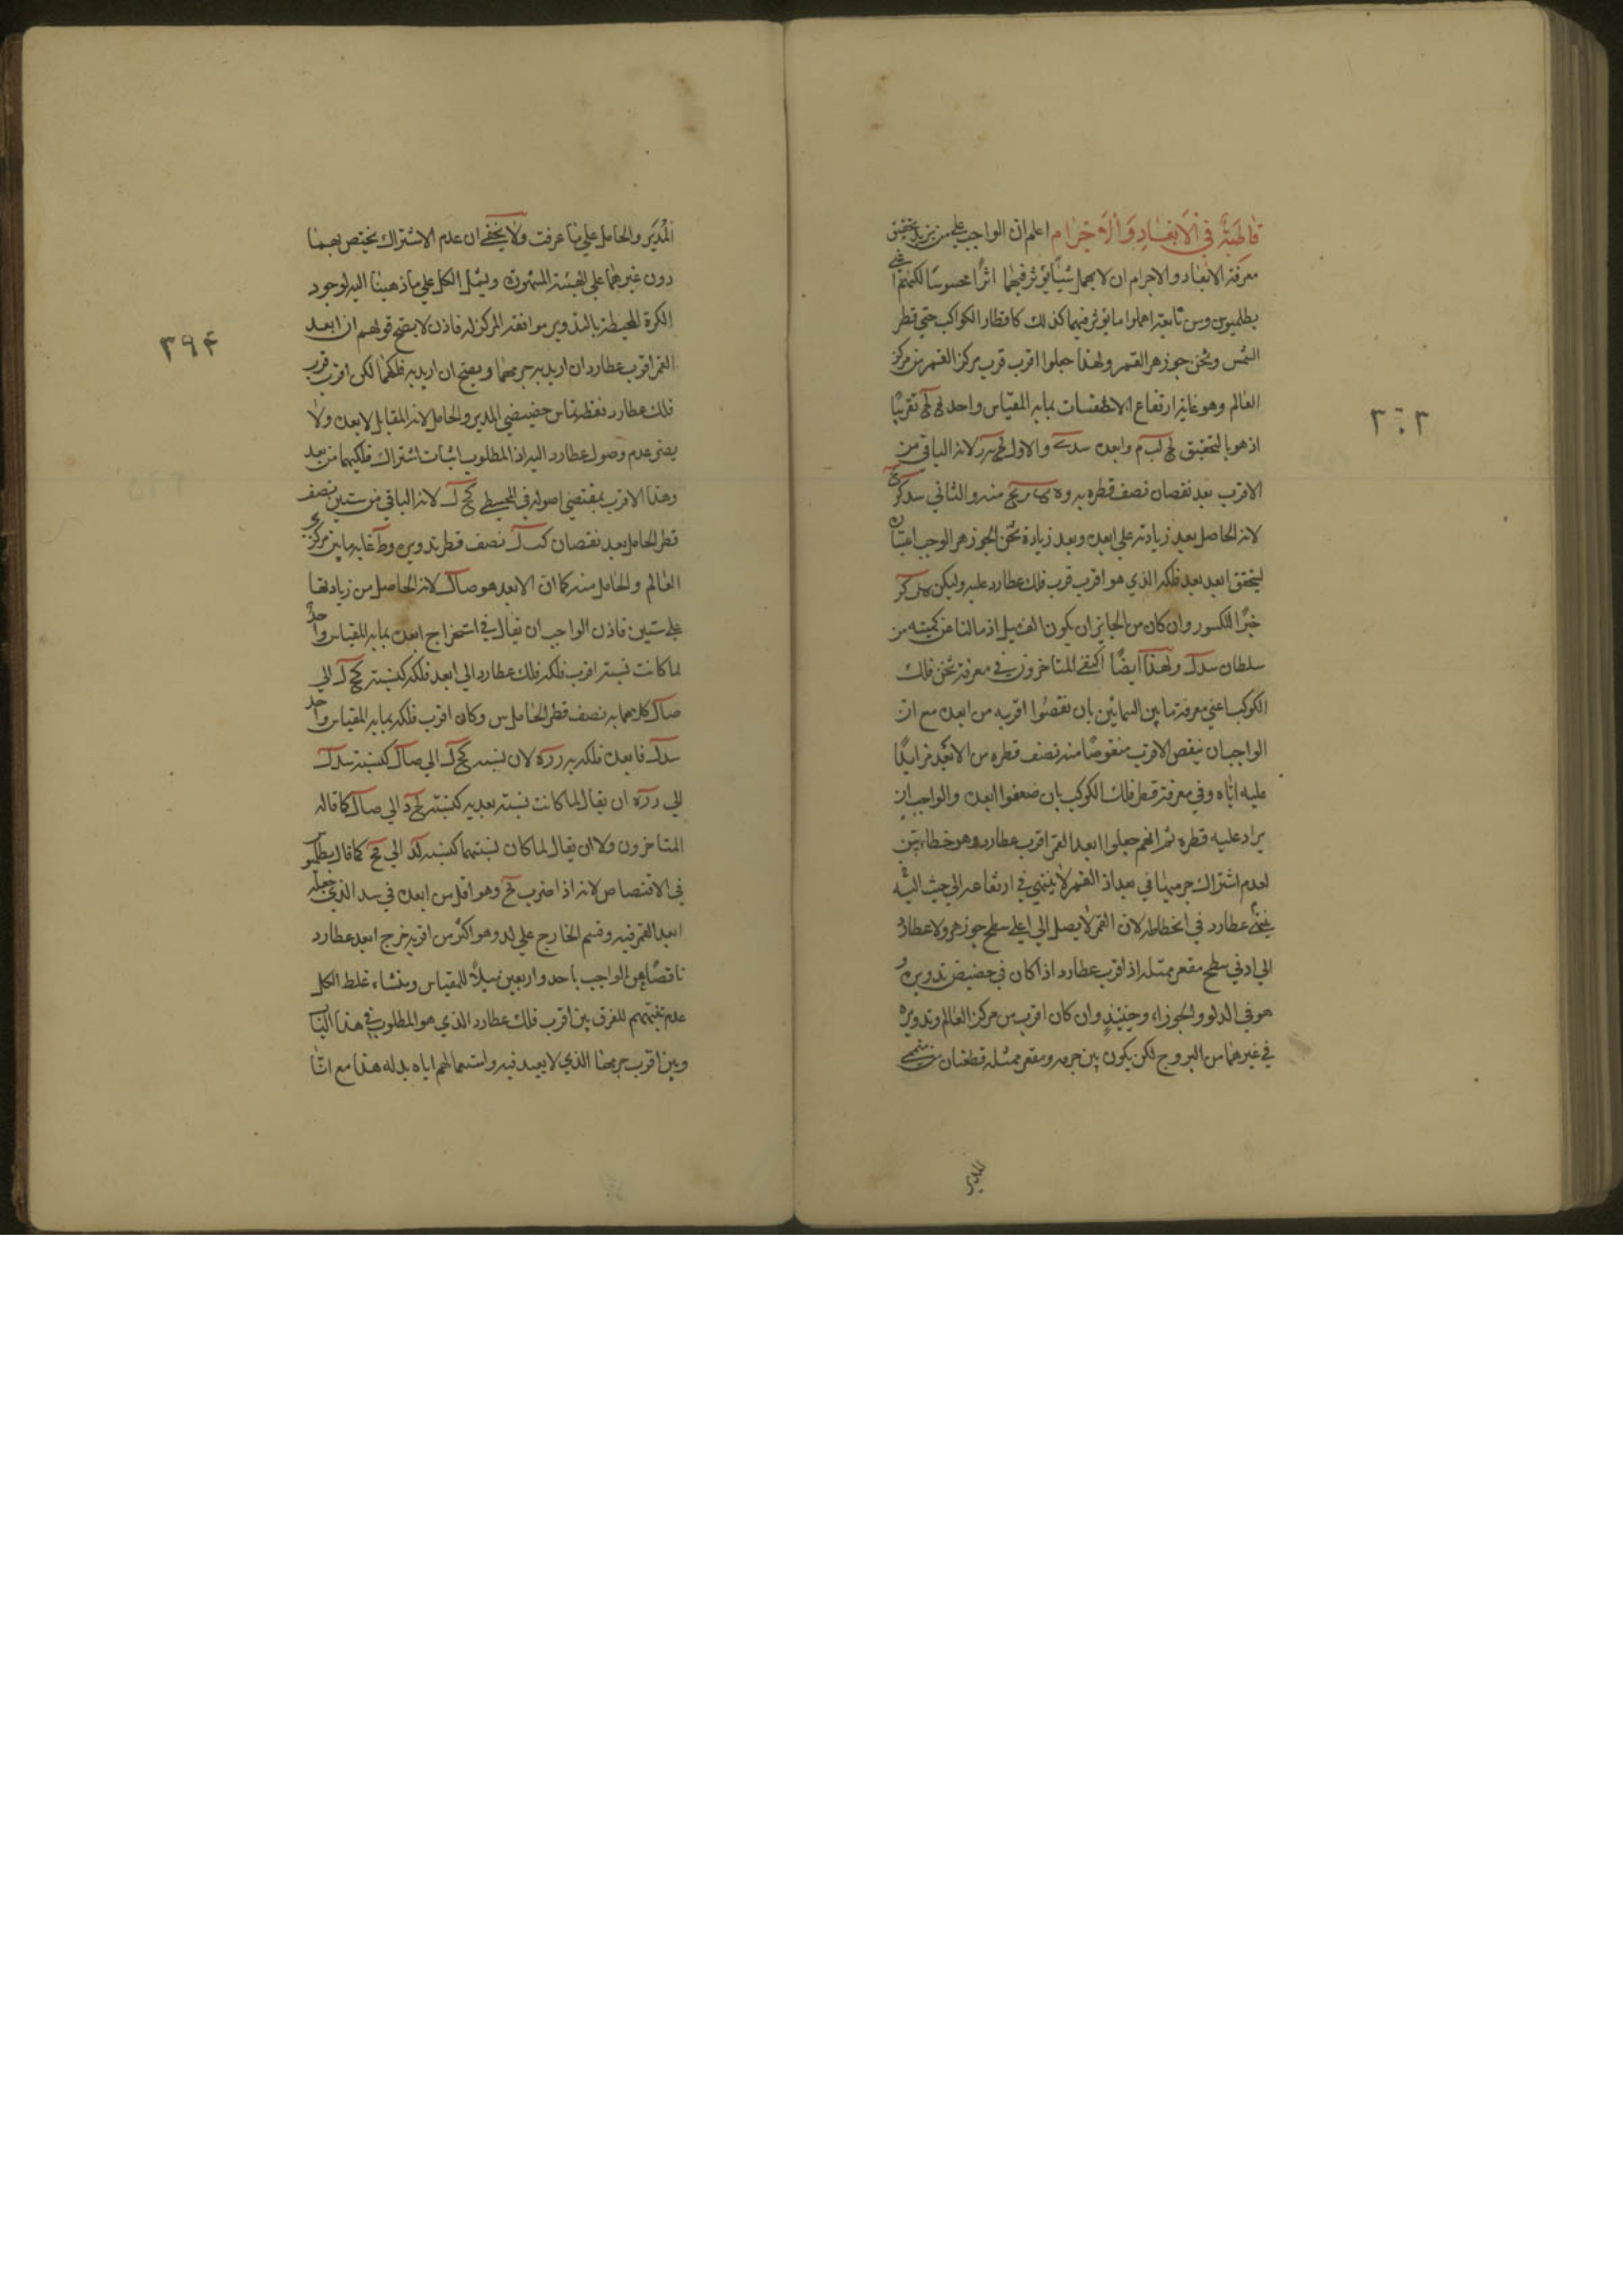 في الابعاد والاجرام اعلم ان الواجب علي من يريد تحقيق
معرفة الابعاد والاجرام ان لا يهمل شيئًا يؤثر فيهما اثرًا محسوسًا لكنهم اعني
بطلميوس ومن تابعه اهملوا ما يؤثر فيهما كذلك كاقطار الكواكب حتي قطر
الشمس وثخن جوزهر القمر ولهذا جعلوا اقرب قرب مركز القمر من مركز
العالم وهو غاية ارتفاع الاسطقسات بما به المقياس واحد تقريبًا
اذ هو بالتحقيق وابعده والاول لانه الباقي من
الاقرب بعد نقصان نصف قطره منه والثاني
لانه الحاصل بعد زيادته علي ابعده وبعد زيادة ثخن الجوزهر الوجب اعتباره
ليتحقق ابعد بعد فلكه الذي هو اقرب قرب فلك عطارد عليه وليكن
جبرًا للكسور وان كان من الجايز ان يكون الف ميل اذ مالنا عن كميته من
سلطان ولهذا ايضًا اكتفي المتاخرون في معرفة ثخن فلك
الكوكب اعني معرفة ما بين السمائين بان نقصوا اقربه من ابعده مع ان
الواجب ان ينقص الاقرب منقوصًا منه نصف قطره من الابعد مزايدًا
عليه اياه وفي معرفة قطر فلك الكوكب بان ضعفوا ابعده والواجب ان
يراد عليه قطره ثم انهم جعلوا ابعد القمر اقرب عطارد وهو خطاء بين
لعدم اشتراك جرميهما في بعد اذ القمر لا ينتهي في ارتفاعه الي حيث
ينتهي عطارد في انحطاطه لان القمر لا يصل الي اعلي سطح جوزهره ولا عطارد
الي ادني سطح مقعر ممثله اذ اقرب عطارد اذا كان في حضيض تدويره و
هو في الدلو والجوزاء وحينئذٍ وان كان اقرب من مركز العالم وتدويره
في غيرهما من البروج لكن يكون بين جرمه ومقعر ممثله قطعتان من متممي
المدير
٣٠٣
المدير والحامل علي ما عرفت ولا يخفي ان عدم الاشتراك يختص بهما
دون غيرهما علي الهيئة المشهورة ويشمل الكل علي ما ذهبنا اليه لوجود
الكرة المحيطة بالتدوير موافقة المركز له فاذن لا يصح قولهم ان ابعد
القمر اقرب عطارد ان اريد به جرمهما ويصح ان اريد به فلكهما لكن اقرب قرب
فلك عطارد نقطة تماس حضيضي المدير والحامل لانه المقابل لابعده ولا
يضر عدم وصول عطارد اليه اذ المطلوب اثبات اشتراك فلكيهما في بعد
وهذا الاقرب بمقتضي اصوله في المجسطي لانه الباقي من ستين نصف
قطر الحامل بعد نقصان نصف قطر تدويره و غاية ما بين مركزي
العالم والحامل منه كما ان الابعد هو لانه الحاصل من زيادتها
علي ستين فاذن الواجب ان يقال في استخراج ابعده بما به المقياس واحد
لما كانت نسبة اقرب فلكه فلك عطارد الي ابعد فلكه كنسبة الي
كلاهما به نصف قطر الحامل س وكان اقرب فلكه بما به المقياس واحد
فابعده فلكه به لان نسبة الي كنسبة
الي ان يقال لما كانت نسبة بعديه كنسبة الي كما قاله
المتاخرون ولا ان يقال لما كان نسبتهما كنسبة الي كما قال بطلميوس
في الاقتصاص لانه اذا ضرب وهو اقل من ابعده في الذي جعله
ابعد القمر فيه وقسم الخارج علي وهو اكثر من اقربه خرج ابعد عطارد
ناقصًا عن الواجب باحد واربعين ميلًا للمقياس ومنشاء غلط الكل
عدم تنبههم للفرق بين اقرب فلك عطارد الذي هو المطلوب في هذا الباب
وبين اقرب جرمها الذي لا يعيد فيه واستعمالهم اياه بدله هذا مع انا
٣٩۴